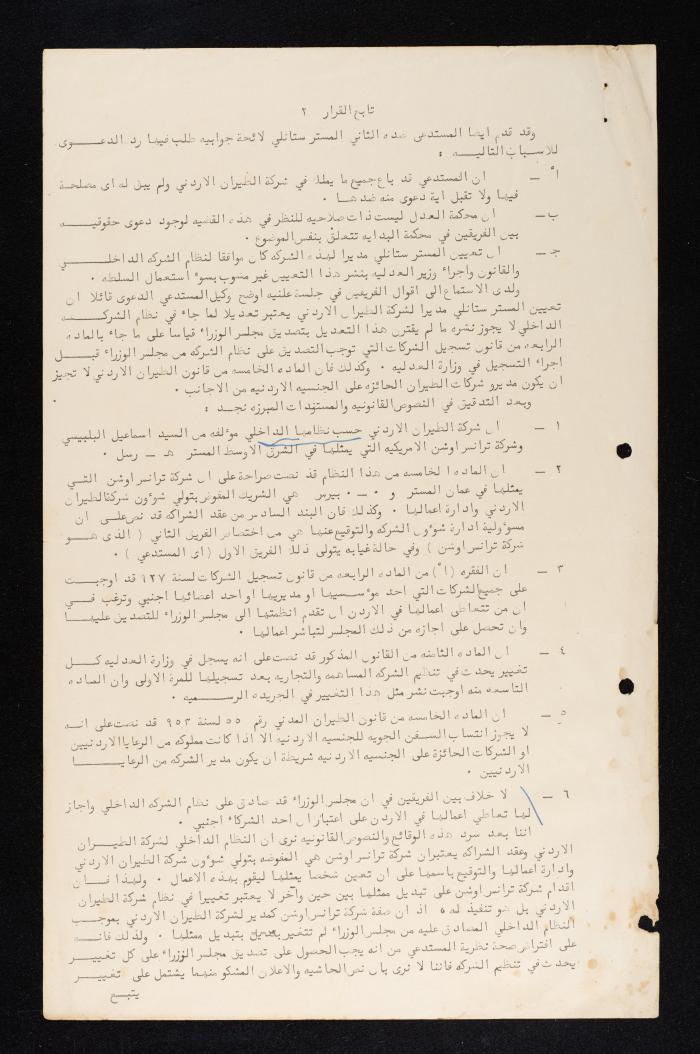 تابع القرار ٢
وقد قدم ايضا المستدعى ضده الثاني المستر ستانلي لائحة جوابيه طلب فيها رد الدعـــــوى
للاسباب التاليــــه :
أ ـ ان المستدعي قد باع جميع ما يملك في شركة الطيران الاردني ولم يبق له اى مصلحة
فيها ولا تقبل اية دعوى منه ضدها .
ب ـ ان محكمة العدل ليست ذات صلاحيه للنظر في هذه القضيه لوجود دعوى حقوقيـــه
بين الفريقين في محكمة البدايه تتعلق بنفس الموضوع .
جـ ـ ان تعيين المستر ستانلي مديرا لهذه الشركه كان موافقا لنظام الشركه الداخلـــــي
والقانون واجراء وزير العدليه بنشر هذا التعيين غير مشوب بسوء استعمال السلطه .
ولدى الاستماع الى اقوال الفريقين في جلسة علنيه اوضح وكيل المستدعي الدعوى قائلا ان
تعيين المستر ستانلي مديرا لشركة الطيران الاردني يعتبر تعديلا لما جاء في نظام الشركـــــه
الداخلي لا يجوز نشره ما لم يقترن هذا التعديل بتصديق مجلس الوزراء قياسا على ما جاء بالماده
الرابعه من قانون تسجيل الشركات التي توجب التصديق على نظام الشركه من مجلس الوزراء قبـــل
اجراء التسجيل في وزارة العدليه . وكذلك فان الماده الخامسه من قانون الطيران الاردني لا تجيز
ان يكون مديرو شركات الطيران الحائزه على الجنسيه الاردنيه من الاجانب .
وبعد التدقيق في النصوص القانونيه والمستندات المبرزه نجد :
١ ـ ان شركة الطيران الاردني حسب نظامها الداخلي مؤلفه من السيد اسماعيل البلبيسي
وشركة ترانس اوشن الامريكيه التي يمثلها في الشرق الاوسط المستر هـ ـ رسل .
٢ ـ ان الماده الخامسه من هذا النظام قد نصت صراحة على ان شركة ترانس اوشن التـــي
يمثلها في عمان المستر و . ـ . بيرس هي الشريك المفوض بتولي شؤون شركة الطيران
الاردني وادارة اعمالها . وكذلك فان البند السادس من عقد الشراكه قد نص على ان
مسؤولية ادارة شؤون الشركه والتوقيع عنها هي من اختصاص الفريق الثاني ( الذى هـــو
شركة ترانس اوشن ) وفي حالة غيابه يتولى ذلك الفريق الاول ( اى المستدعي ) .
٣ ـ ان الفقره (أ) من الماده الرابعه من قانون تسجيل الشركات لسنة ١٢٧ قد اوجبـــت
على جميع الشركات التي احد مؤسسيها او مديريها او احد اعضائها اجنبي وترغب فـــي
ان من تتعاطى اعمالها في الاردن ان تقدم انظمتها الى مجلس الوزراء للتصديق عليهـــا
وان تحصل على اجازه من ذلك المجلس لتباشر اعمالها .
٤ ـ ان الماده الثامنه من القانون المذكور قد نصت على انه يسجل في وزارة العدليه كـــل
تغيير يحدث في تنظيم الشركه المساهمه والتجاريه بعد تسجيلها للمرة الاولى وان المـاده
التاسعه منه اوجبت نشر مثل هذا التغيير في الجريده الرسـميه .
٥ ـ ان الماده الخامسه من قانون الطيران المدني رقم ٥٥ لسنة ٩٥٣ قد نصت على انـــه
لا يجوز انتساب السـفن الجويه للجنسيه الاردنيه الا اذا كانت مملوكه من الرعايا الاردنيين
او الشركات الحائزة على الجنسيه الاردنيه شريطة ان يكون مدير الشركه من الرعايــــــا
الاردنيين .
٦ ـ لا خلاف بين الفريقين في ان مجلس الوزراء قد صادق على نظام الشركه الداخلي واجاز
لها تعاطي اعمالها في الاردن على اعتبار ان احد الشركاء اجنبي .
اننا بعد سرد هذه الوقائع والنصوص القانونيه نرى ان النظام الداخلي لشركة الطيـــران
الاردني وعقد الشراكه يعتبران شركة ترانس اوشن هي المفوضه بتولي شؤون شركة الطيران الاردني
وادارة اعمالها والتوقيع باسمها على ان تعين شخصا يمثلها ليقوم بهذه الاعمال . ولهذا فـــان
اقدام شركة ترانس اوشن على تبديل ممثلها بين حين وآخر لا يعتبر تغييرا في نظام شركة الطيران
الاردني بل هو تنفيذ له ، اذ ان صفة شركة ترانس اوشن كمدير لشركة الطيران الاردني بموجـب
النظام الداخلي المصادق عليه من مجلس الوزراء لم تتغير بتبديل ممثلها . ولذلك فانـــه
على افتراض صحة نظرية المستدعي من انه يجب الحصول على تصديق مجلس الوزراء على كل تغييـــر
يحدث في تنظيم الشركه فاننا لا نرى بان نص الحاشيه والاعلان المشكو منهما يشتمل على تغييـــر
يتبـــع